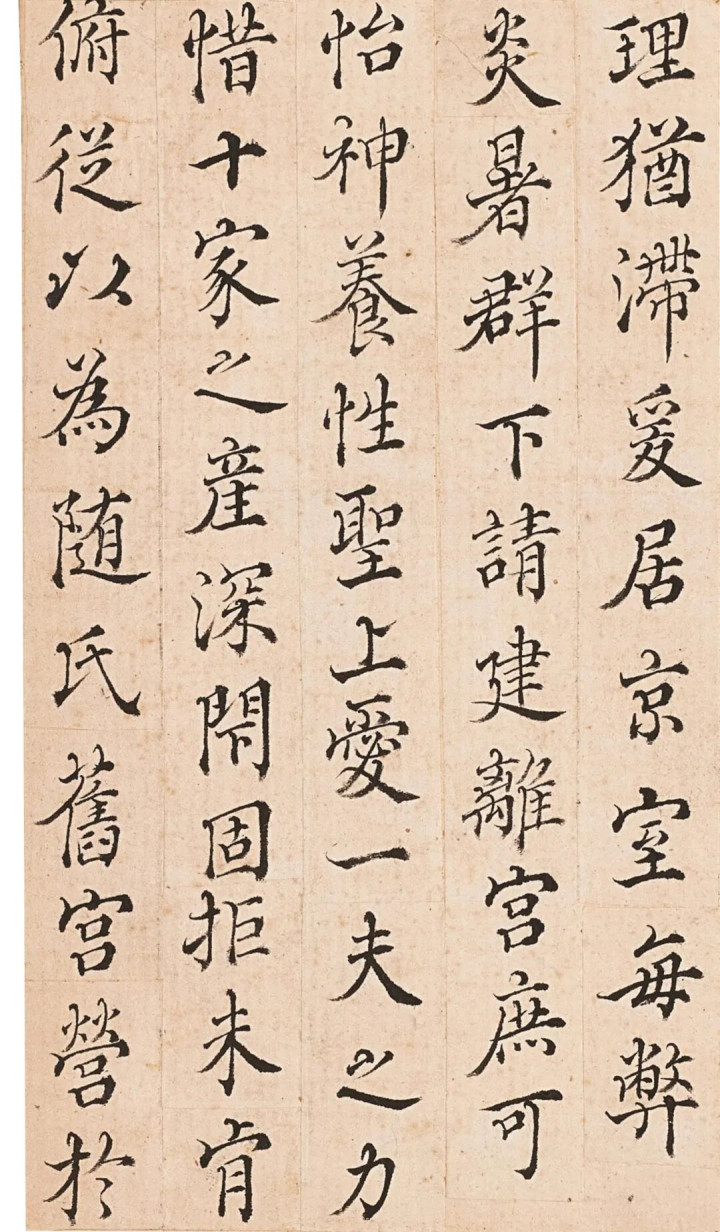 理猶滯爰居京室每弊
炎暑群下請建離宮庶可
怡神養性聖上愛一夫之力
惜十家之産深閇固拒未肯
俯從以為随氏舊宮營於